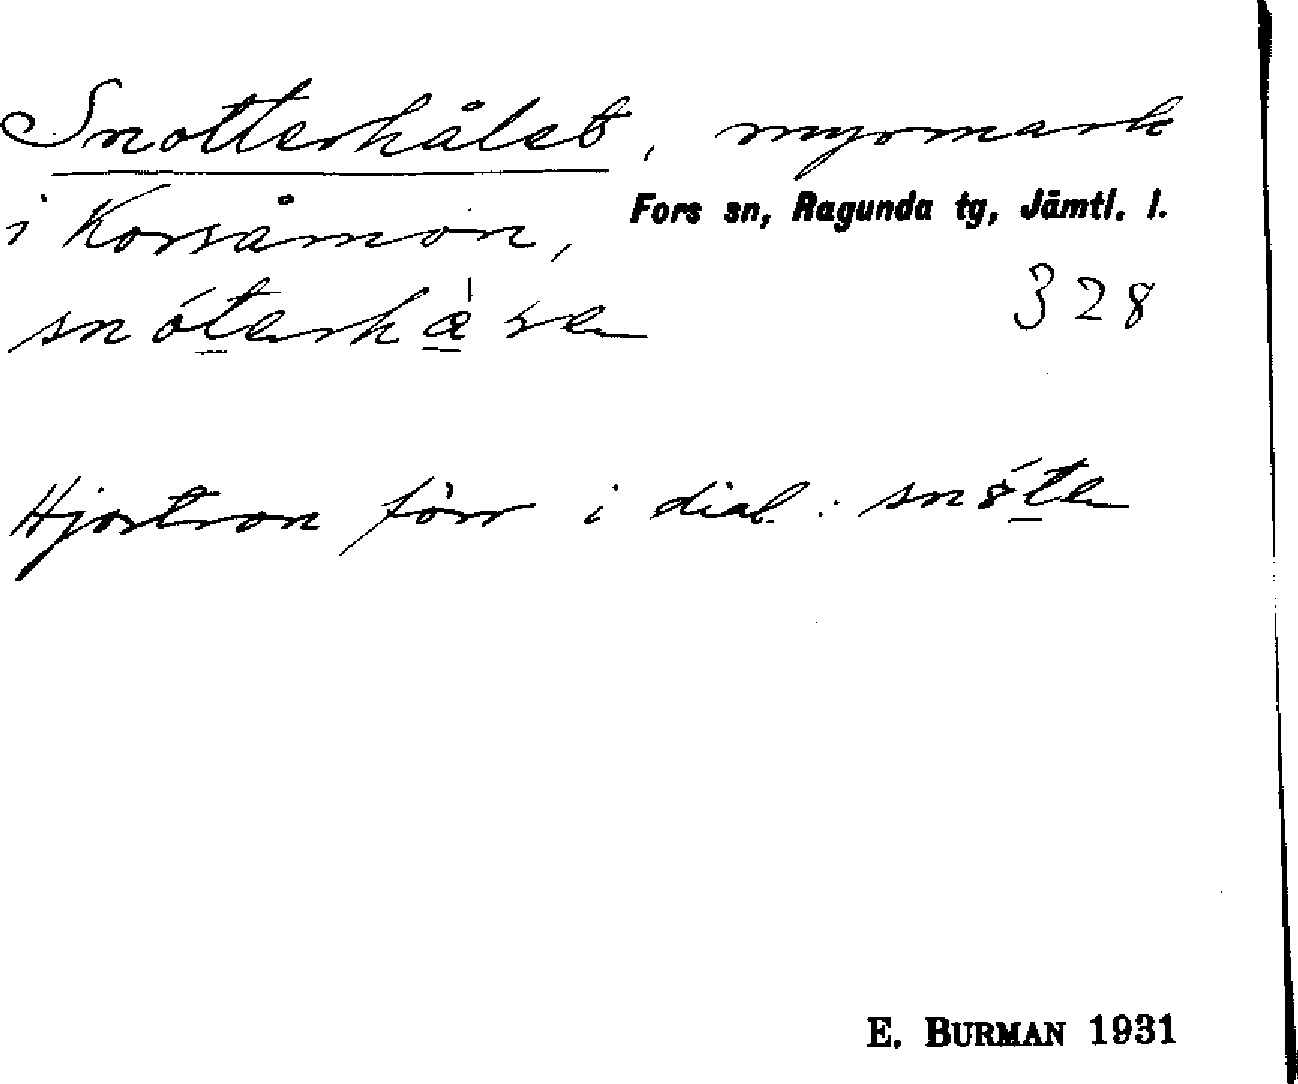 Snotterhålet, myrmark
i Korsåmon,
Fors sn, Ragunda tg, Jämtl. l.
328
Hjortron förr i dial.: snóte
E. BURMAN 1931